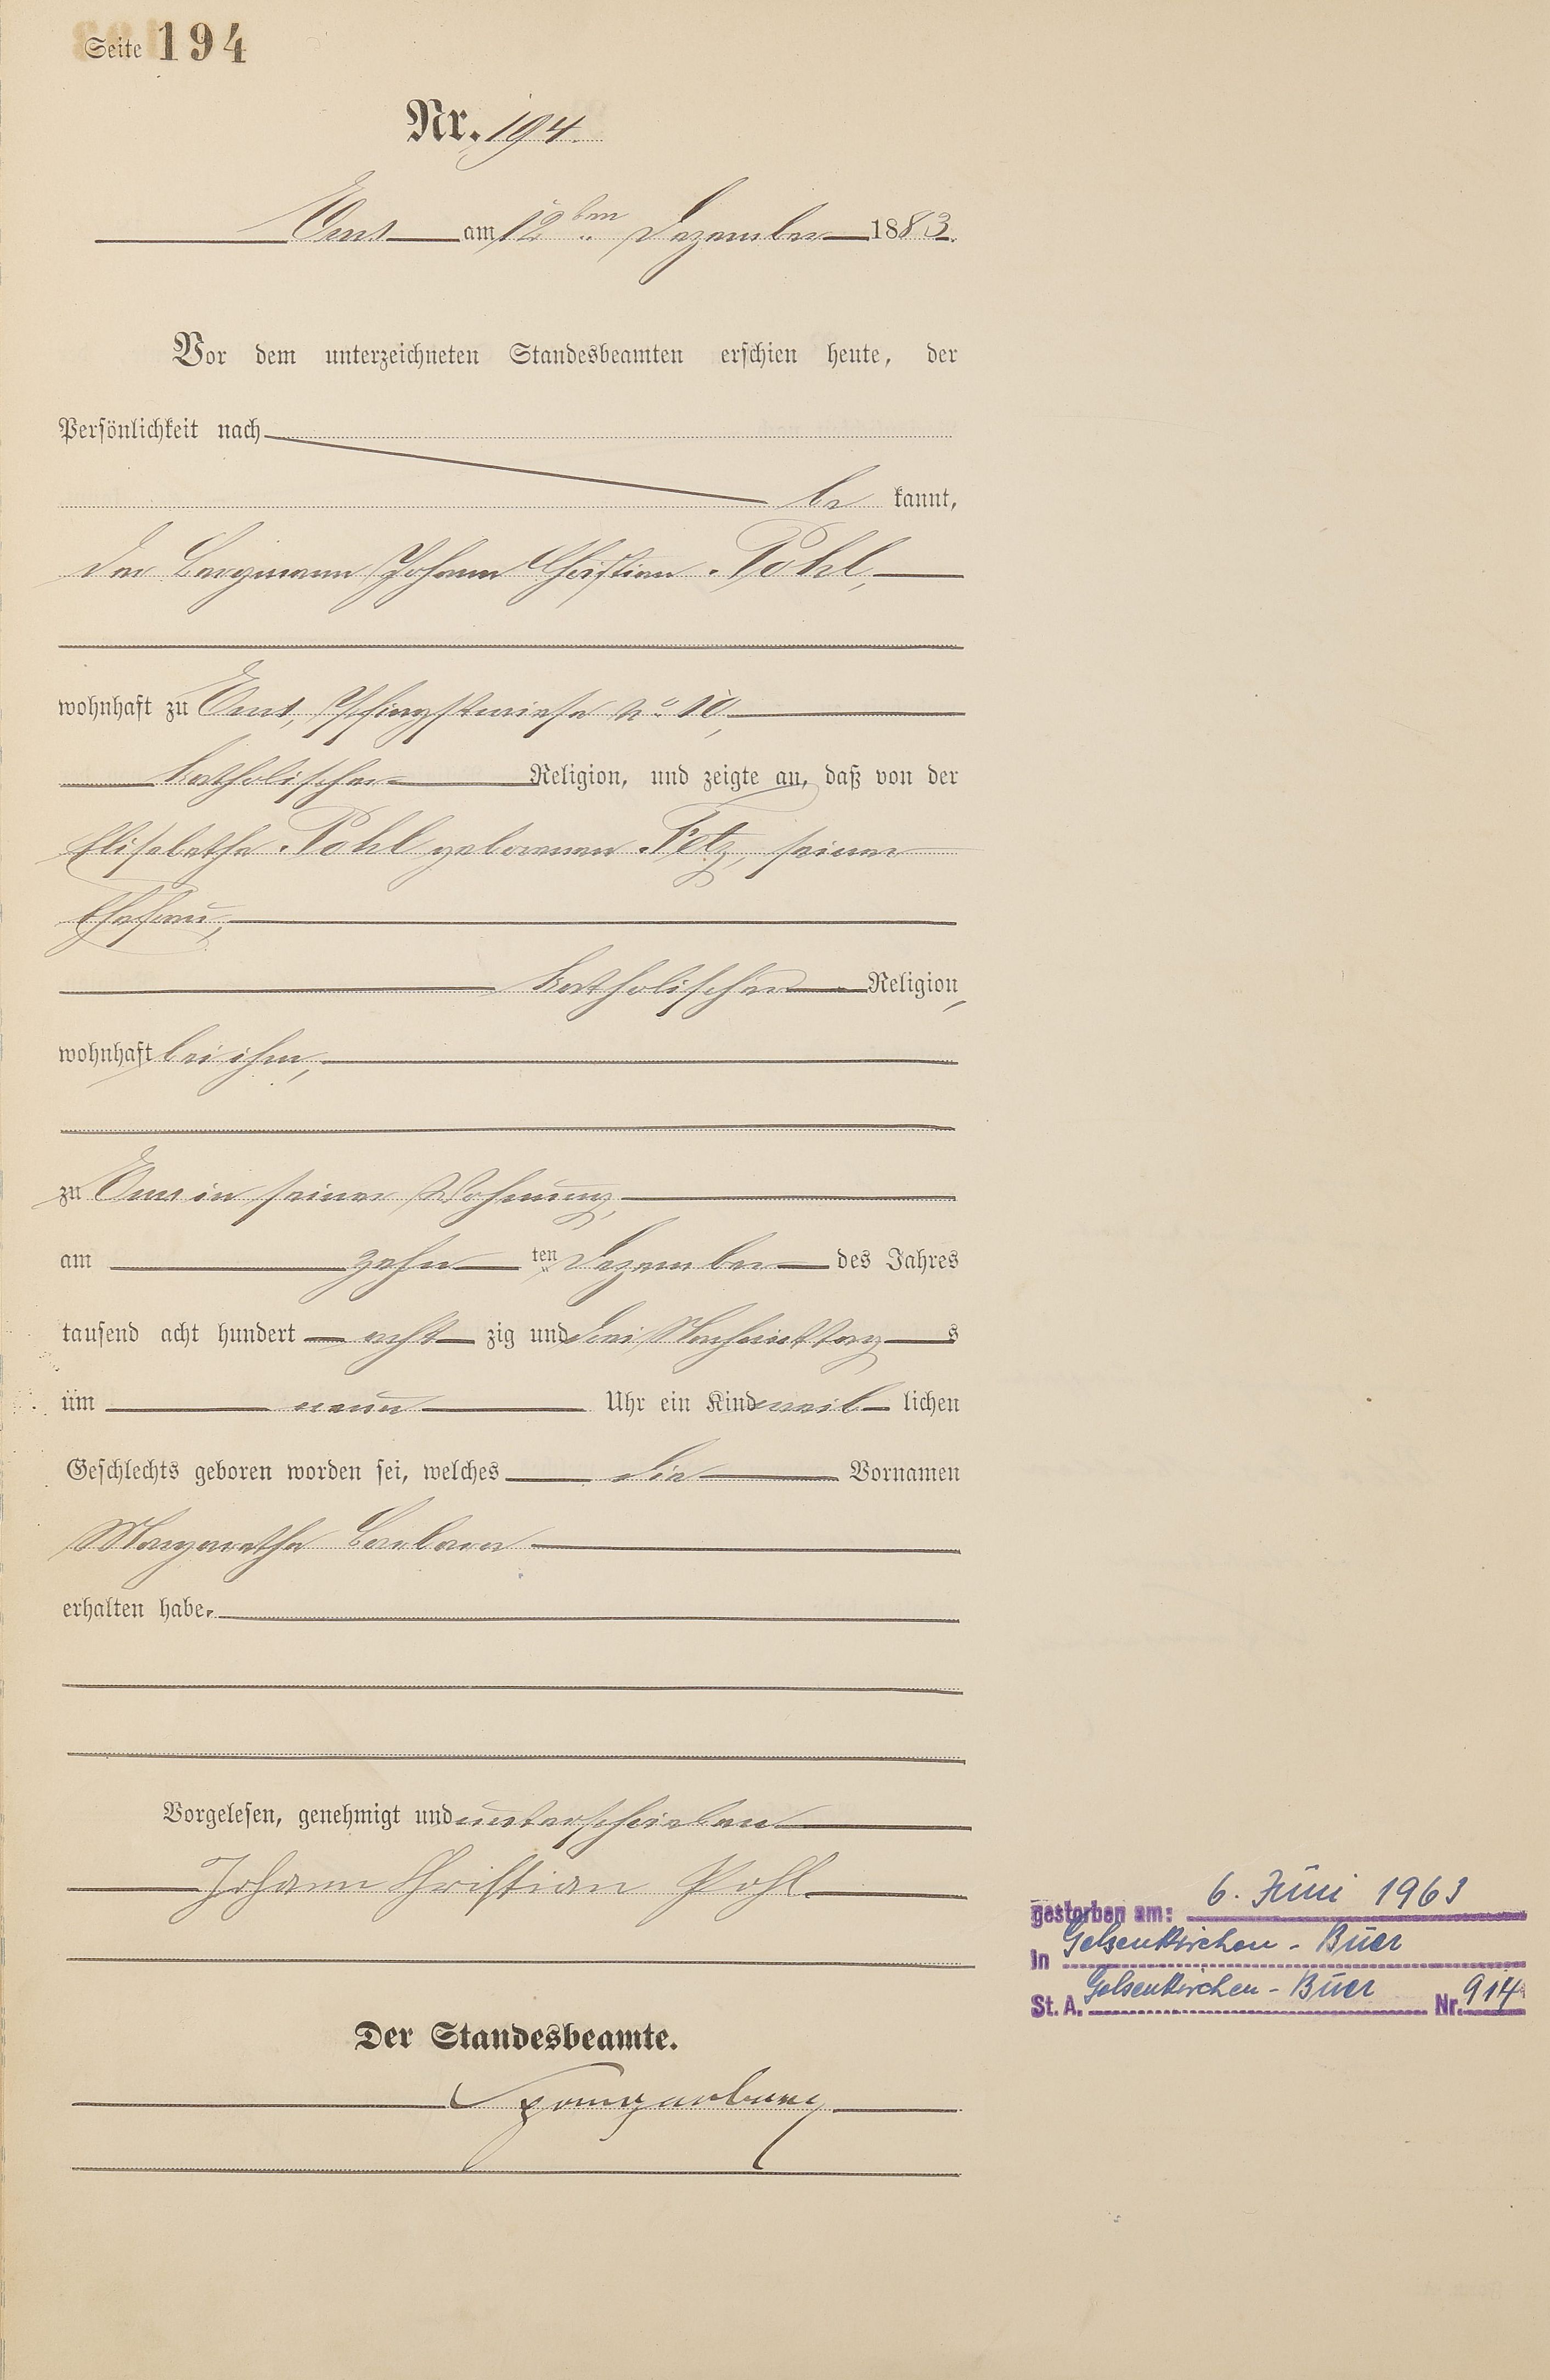 Seite 194
Nr. 194.
Ems am 12ten Dezember 1883.
Vor dem unterzeichneten Standesbeamten erschien heute, der
Persönlichkeit nach
be kannt,
der Bergmann Johann Christian Pohl,
wohnhaft zu Ems, Pfingstwiese No 10,
katholischer Religion, und zeigte an, daß von der
Elisabetha Pohl geborenen Fetz, seiner
Ehefrau,
katholischer Religion,
wohnhaft bei ihm,
zu Ems in seiner Wohnung,
am zehn ten Dezember des Jahres
tausend acht hundert acht zig und drei Nachmittag s
um neun Uhr ein Kind weib lichen
Geschlechts geboren worden sei, welches die Vornamen
Margaretha Barbara
erhalten habe.
Vorgelesen, genehmigt und unterschrieben
Johann Christian Pohl
gestorben am: 6. Juni 1963
in Gelsenkirchen - Buer
St. A. Gelsenkirchen - Buer Nr. 914
Der Standesbeamte.